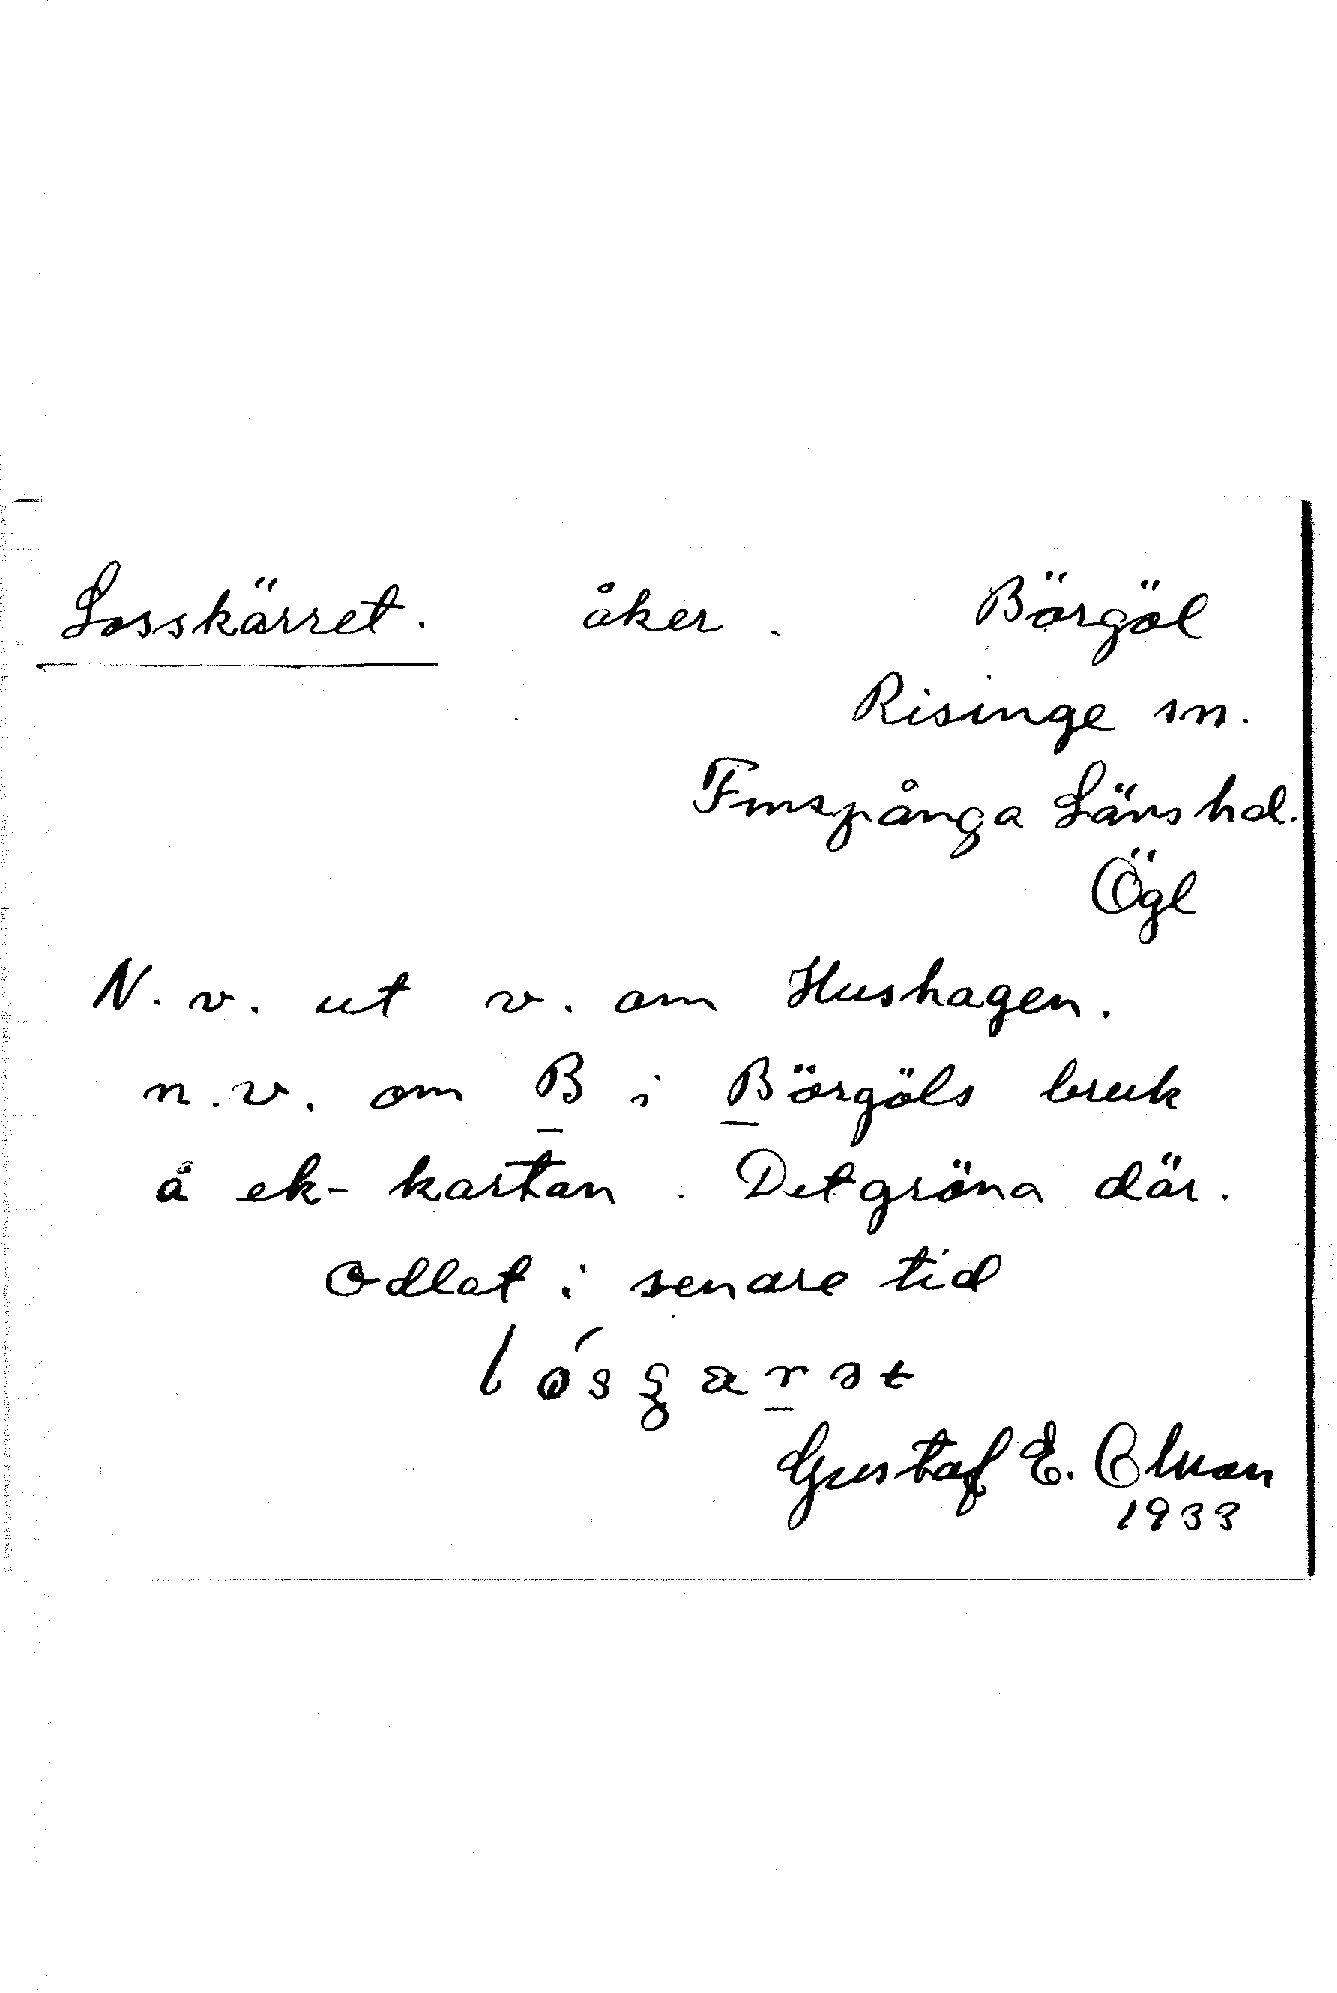 Losskärret. åker. Börgöl
Risinge sn.
Finspånga Läns hd.
Ögl
N. v. ut v. om Hushagen.
n.v. om B i Börgöls bruk
å ek-kartan. Det gröna där.
Odlat i senare tid
Gustaf E. Olsson
1933